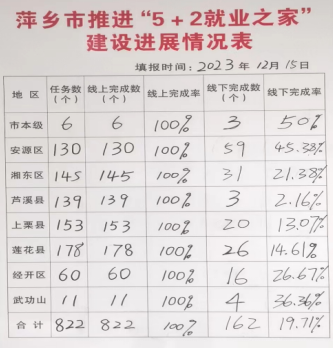 萍乡市推进“5+2就业之家”
建设进展情况表
填报时间：2023年12月15日
地区 任务数（个） 线上完成数（个） 线上完成率 线下完成数（个） 线下完成率
市本级 6 6 100% 3 50%
安源区 130 130 100% 59 45.38%
湘东区 145 145 100% 31 21.38%
芦溪县 139 139 100% 3 2.16%
上栗县 153 153 100% 20 13.07%
莲花县 178 178 100% 26 14.61%
经开区 60 60 100% 16 26.67%
武功山 11 11 100% 4 36.36%
合计 822 822 100% 162 19.71%